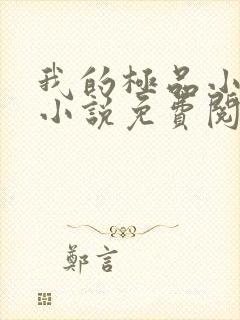 我的極品小
小說免費閱
鄭言